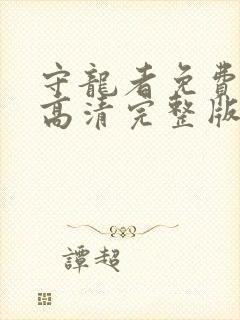 守龍者免費
高清完整版
譚超